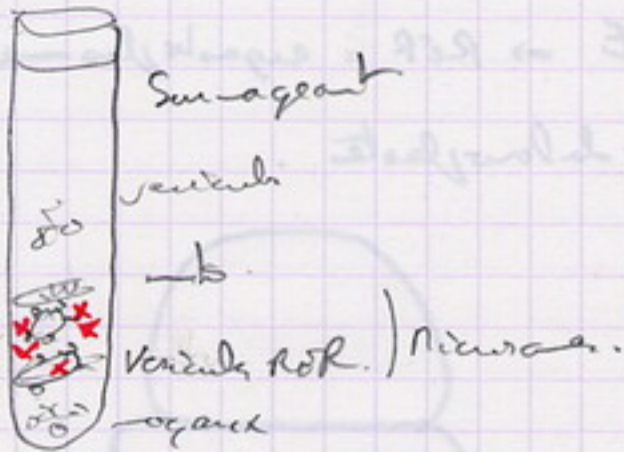 Surnageant
vésicules
mb.
Vésicules RER. ) Microsomes.
noyaux